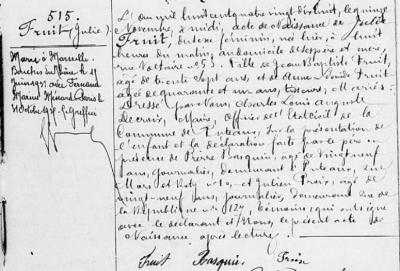 515.
Fruit (Julie).
Mariée à Marseille
Bouches du Rhône le 11
avec Fernand
Marius
Octobre Greffier
L'an mil huit cent quatre vingt dix huit, le quinze
Novembre, à midi, acte de Naissance de Julie
Fruit, du sexe féminin, née hier, à huit
heures du matin, au domicile de ses père et mère,
rue Voltaire n° 53. Fille de Jean Baptiste Fruit,
âgé de trente sept ans, et de Anne Fruit
âgée de quarante et un ans, mariés.
Dressé par Nous, Charles Louis Auguste
Maire, Officier de l'Etat Civil de la
Commune de Puteaux, sur la présentation de
l'enfant et la déclaration faite par le père en
présence de Pierre Basquin, âgé de vingt neuf
ans, journalier, demeurant à Puteaux, rue
et Julien âgé de
vingt-neuf ans, journalier, demeurant rue de
la République n° 124, témoins, qui ont signé
avec le déclarant et Nous, le présent acte de
Naissance après lecture.
Fruit Basquin